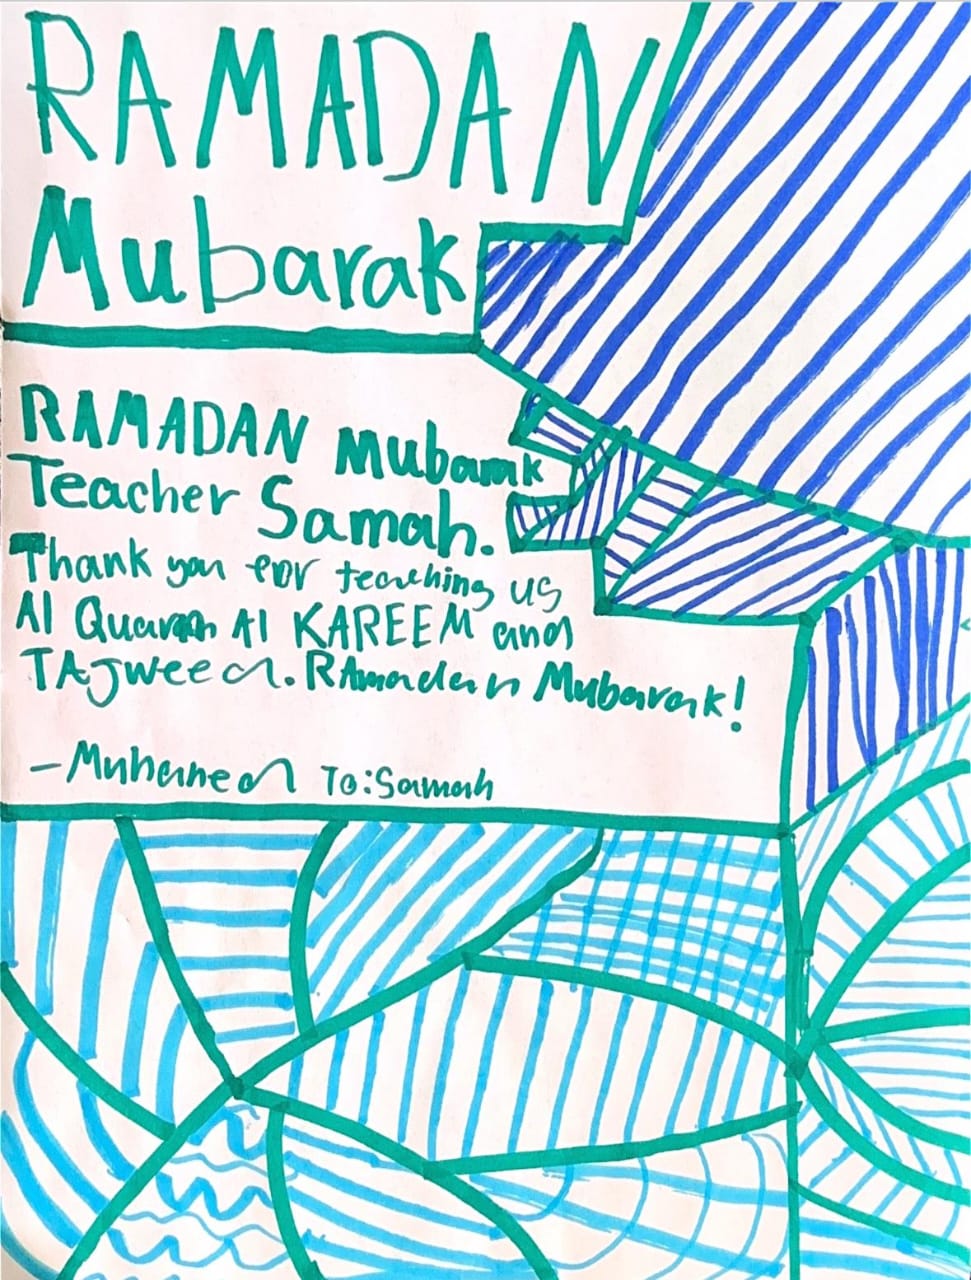 RAMADAN
Mubarak
RAMADAN Mubarak
Teacher Samah.
Thank you for teaching us
Al Quaran Al KAREEM and
TAJweed. RAmadan Mubarak!
-Muhamed To:Samah